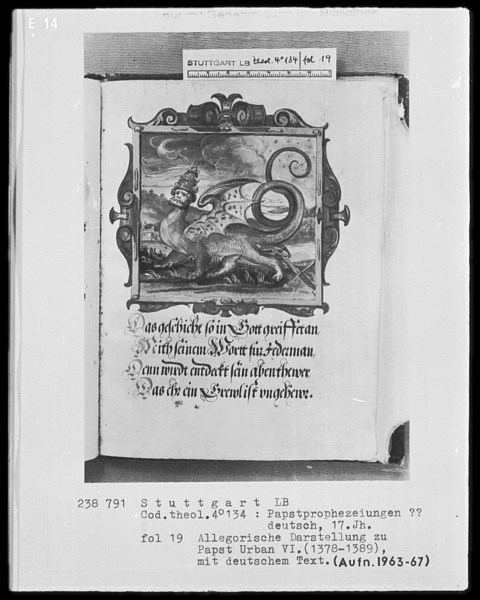 E 14
STUTTGART LB theol. 4° 134 / fol 19
Das geschicht so in Gott greiffet an
Mith seinem Wortt für Jederman
Denn wirdt entdeckt sein abenthewr
Das ehr ein Grewl ist vngehewr.
238 791 Stuttgart LB
Cod.theol.4°134 : Papstprophezeiungen ??
deutsch, 17.Jh.
fol 19 Allegorische Darstellung zu
Papst Urban VI.(1378-1389),
mit deutschem Text. (Aufn.1963-67)